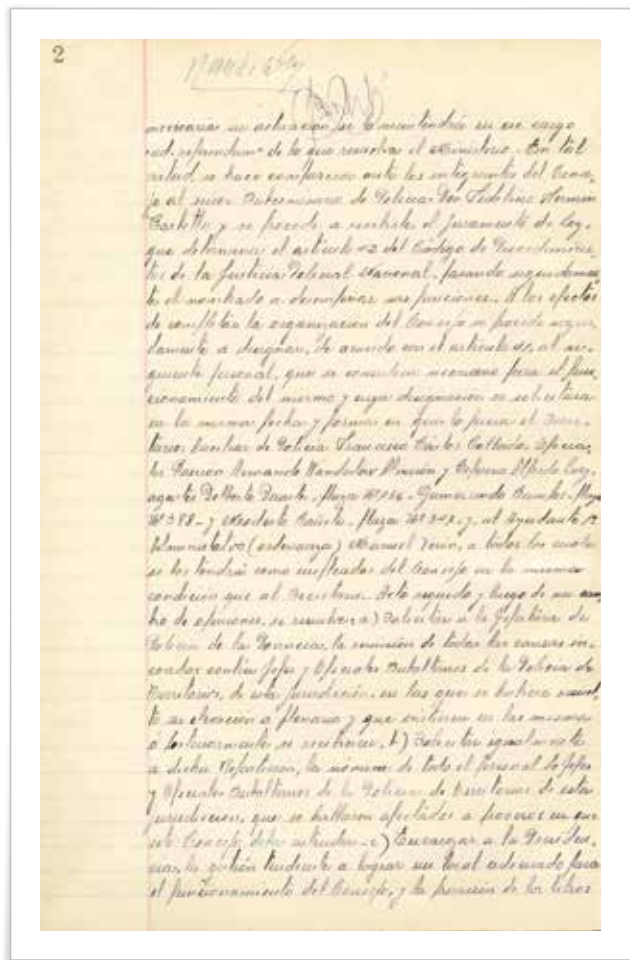 2
necesaria su actuación, se lo mantendrá en ese cargo
"ad-referendum" de lo que resuelva el Ministerio. En tal
virtud, se hace comparecer ante los integrantes del Conse-
jo al señor Subcomisario de Policía Don Fidelino Hernan
y se procede a recibirle el juramento de ley,
que determina el artículo 42 del Código de Procedimien-
tos de la Justicia Policial Nacional, pasando seguidamen-
te el nombrado a desempeñar sus funciones. A los efectos
de completar la organización del Consejo se procede segui-
damente a designar, de acuerdo con el artículo al si-
guiente personal, que se considera necesario para el fun-
cionamiento del mismo y cuya designación se solicitara
en la misma fecha y forma en que lo fuera el Secre-
tario: Auxiliar de Policía Francisco Carlos Oficia-
les Ramon Armando y Alfredo
agentes Duarte, Plaza Nº Gumersindo Plaza
Nº 388 - y Modesto Plaza Nº y al Ayudante
Administrativo (ordenanza) Manuel a todos los cuales
se los tendrá como empleados del Consejo en la misma
condición que al Secretario. Acto seguido y luego de un cam-
bio de opiniones, se resuelve: a) Solicitar a la Jefatura de
Policía de la Provincia, la remisión de todas las causas in-
coadas contra Jefes y Oficiales Subalternos de la Policía de
Territorios, de esta jurisdicción, en las que se hubiera resuel-
to su elevación a plenario y que existieren en las mismas
o posteriormente se recibieran, b) Solicitar igualmente
a dicha Repartición, la nómina de todo el Personal de Jefes
y Oficiales Subalternos de la Policía de Territorios de esta
jurisdicción, que se hallaren afectados a procesos en que
este Consejo deba entender. c) Encargar a la Presiden-
cia, la gestión tendiente a lograr un local adecuado para
el funcionamiento del Consejo, y la provisión de los libros